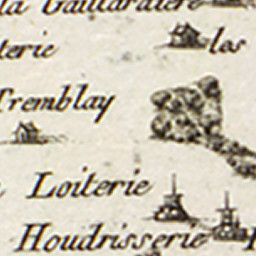 la Gaillardiere
terie
les
Tremblay
Loiterie
Houdrisserie